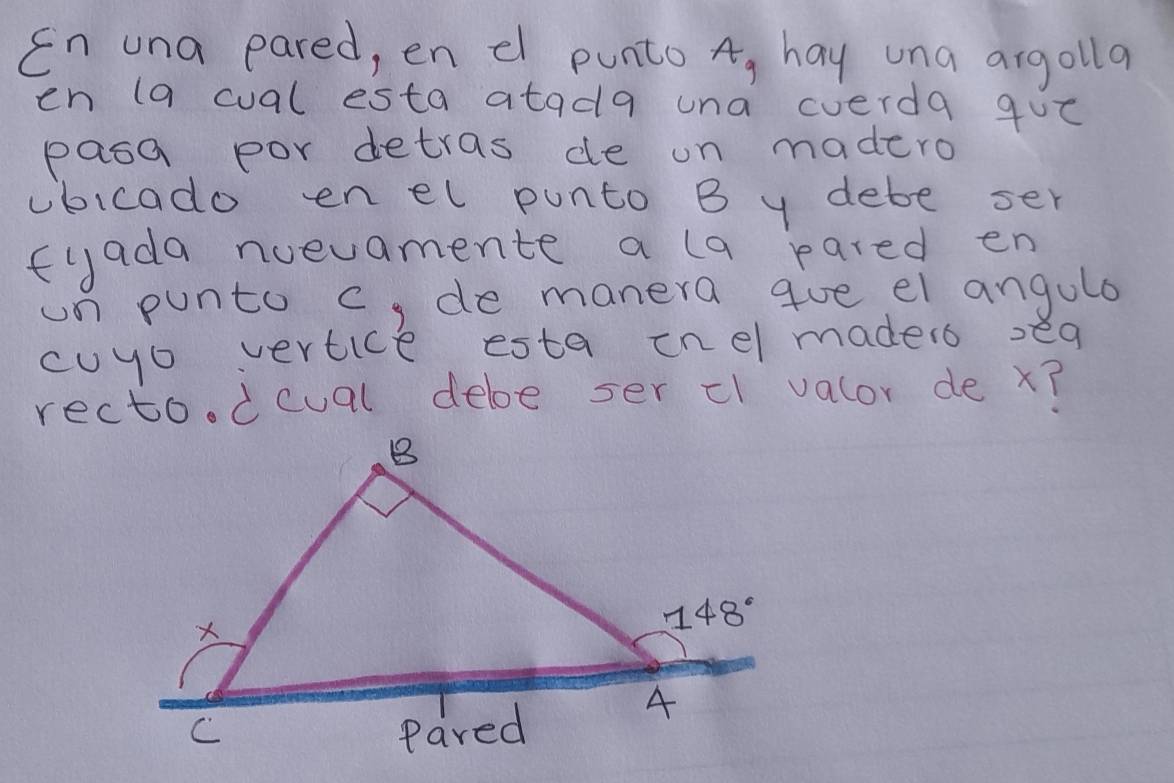 En una pared, en el punto A, hay una argolla
en la cual esta atada una cuerda que
pasa por detras de un madero
ubicado en el punto B y debe ser
fijada nuevamente a la pared en
un punto C, de manera que el angulo
cuyo vertice esta en el madero sea
recto. ¿cual debe ser el valor de x?
B
x
148°
C
A
Pared